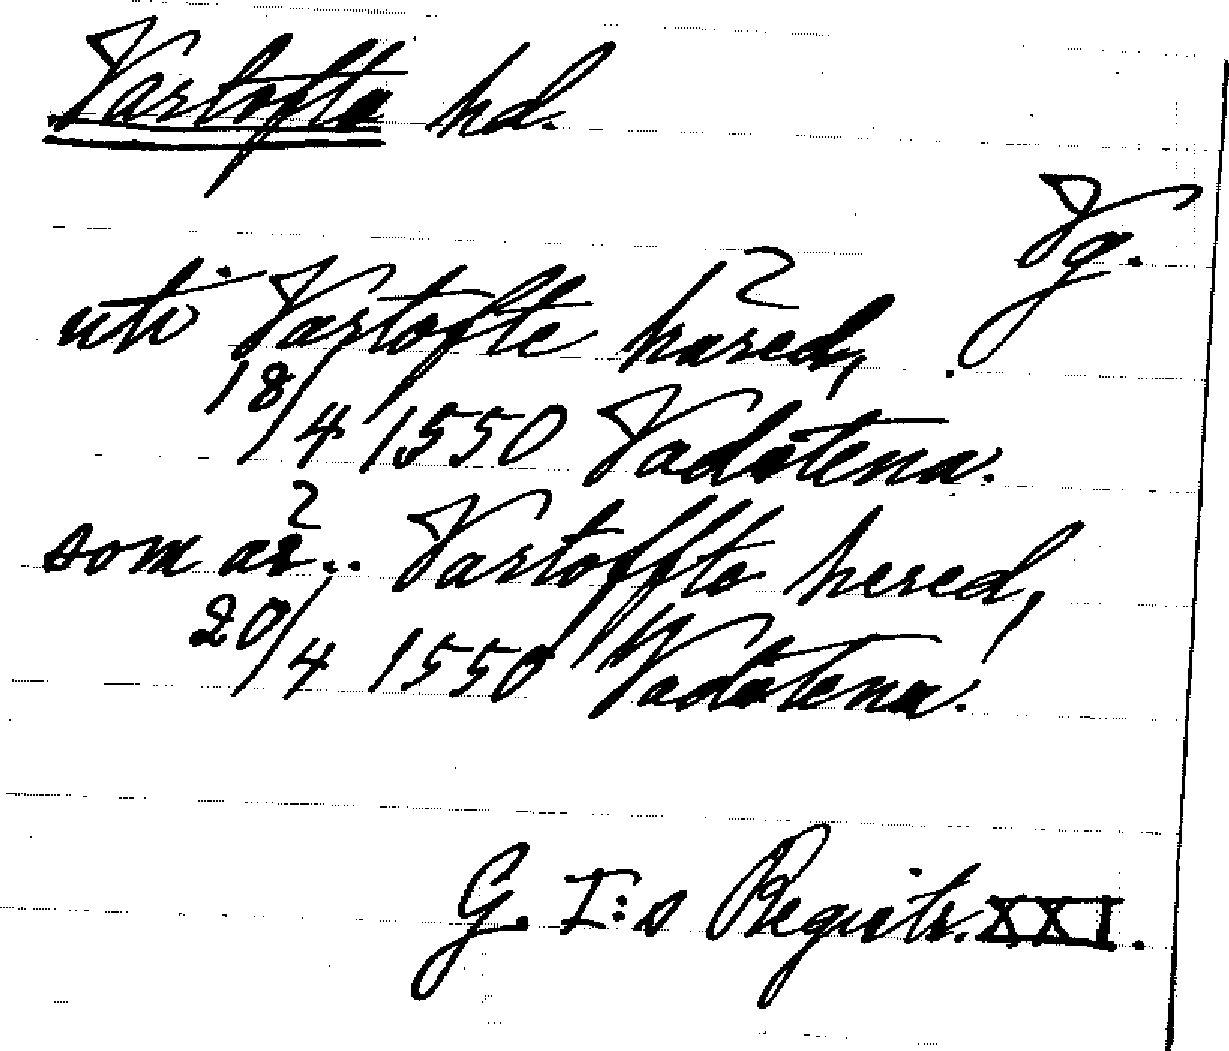 Vartofta hd.
Vg.
uti Vartofte hared,
18/4 1550 Vadstena.
som är.. Vartoffte hered,
20/4 1550 Vadstena.
G. I:s Registr. XXI.